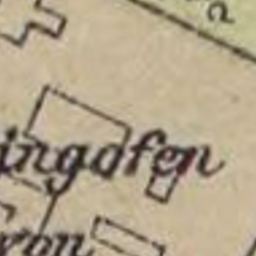 ingofen
ron